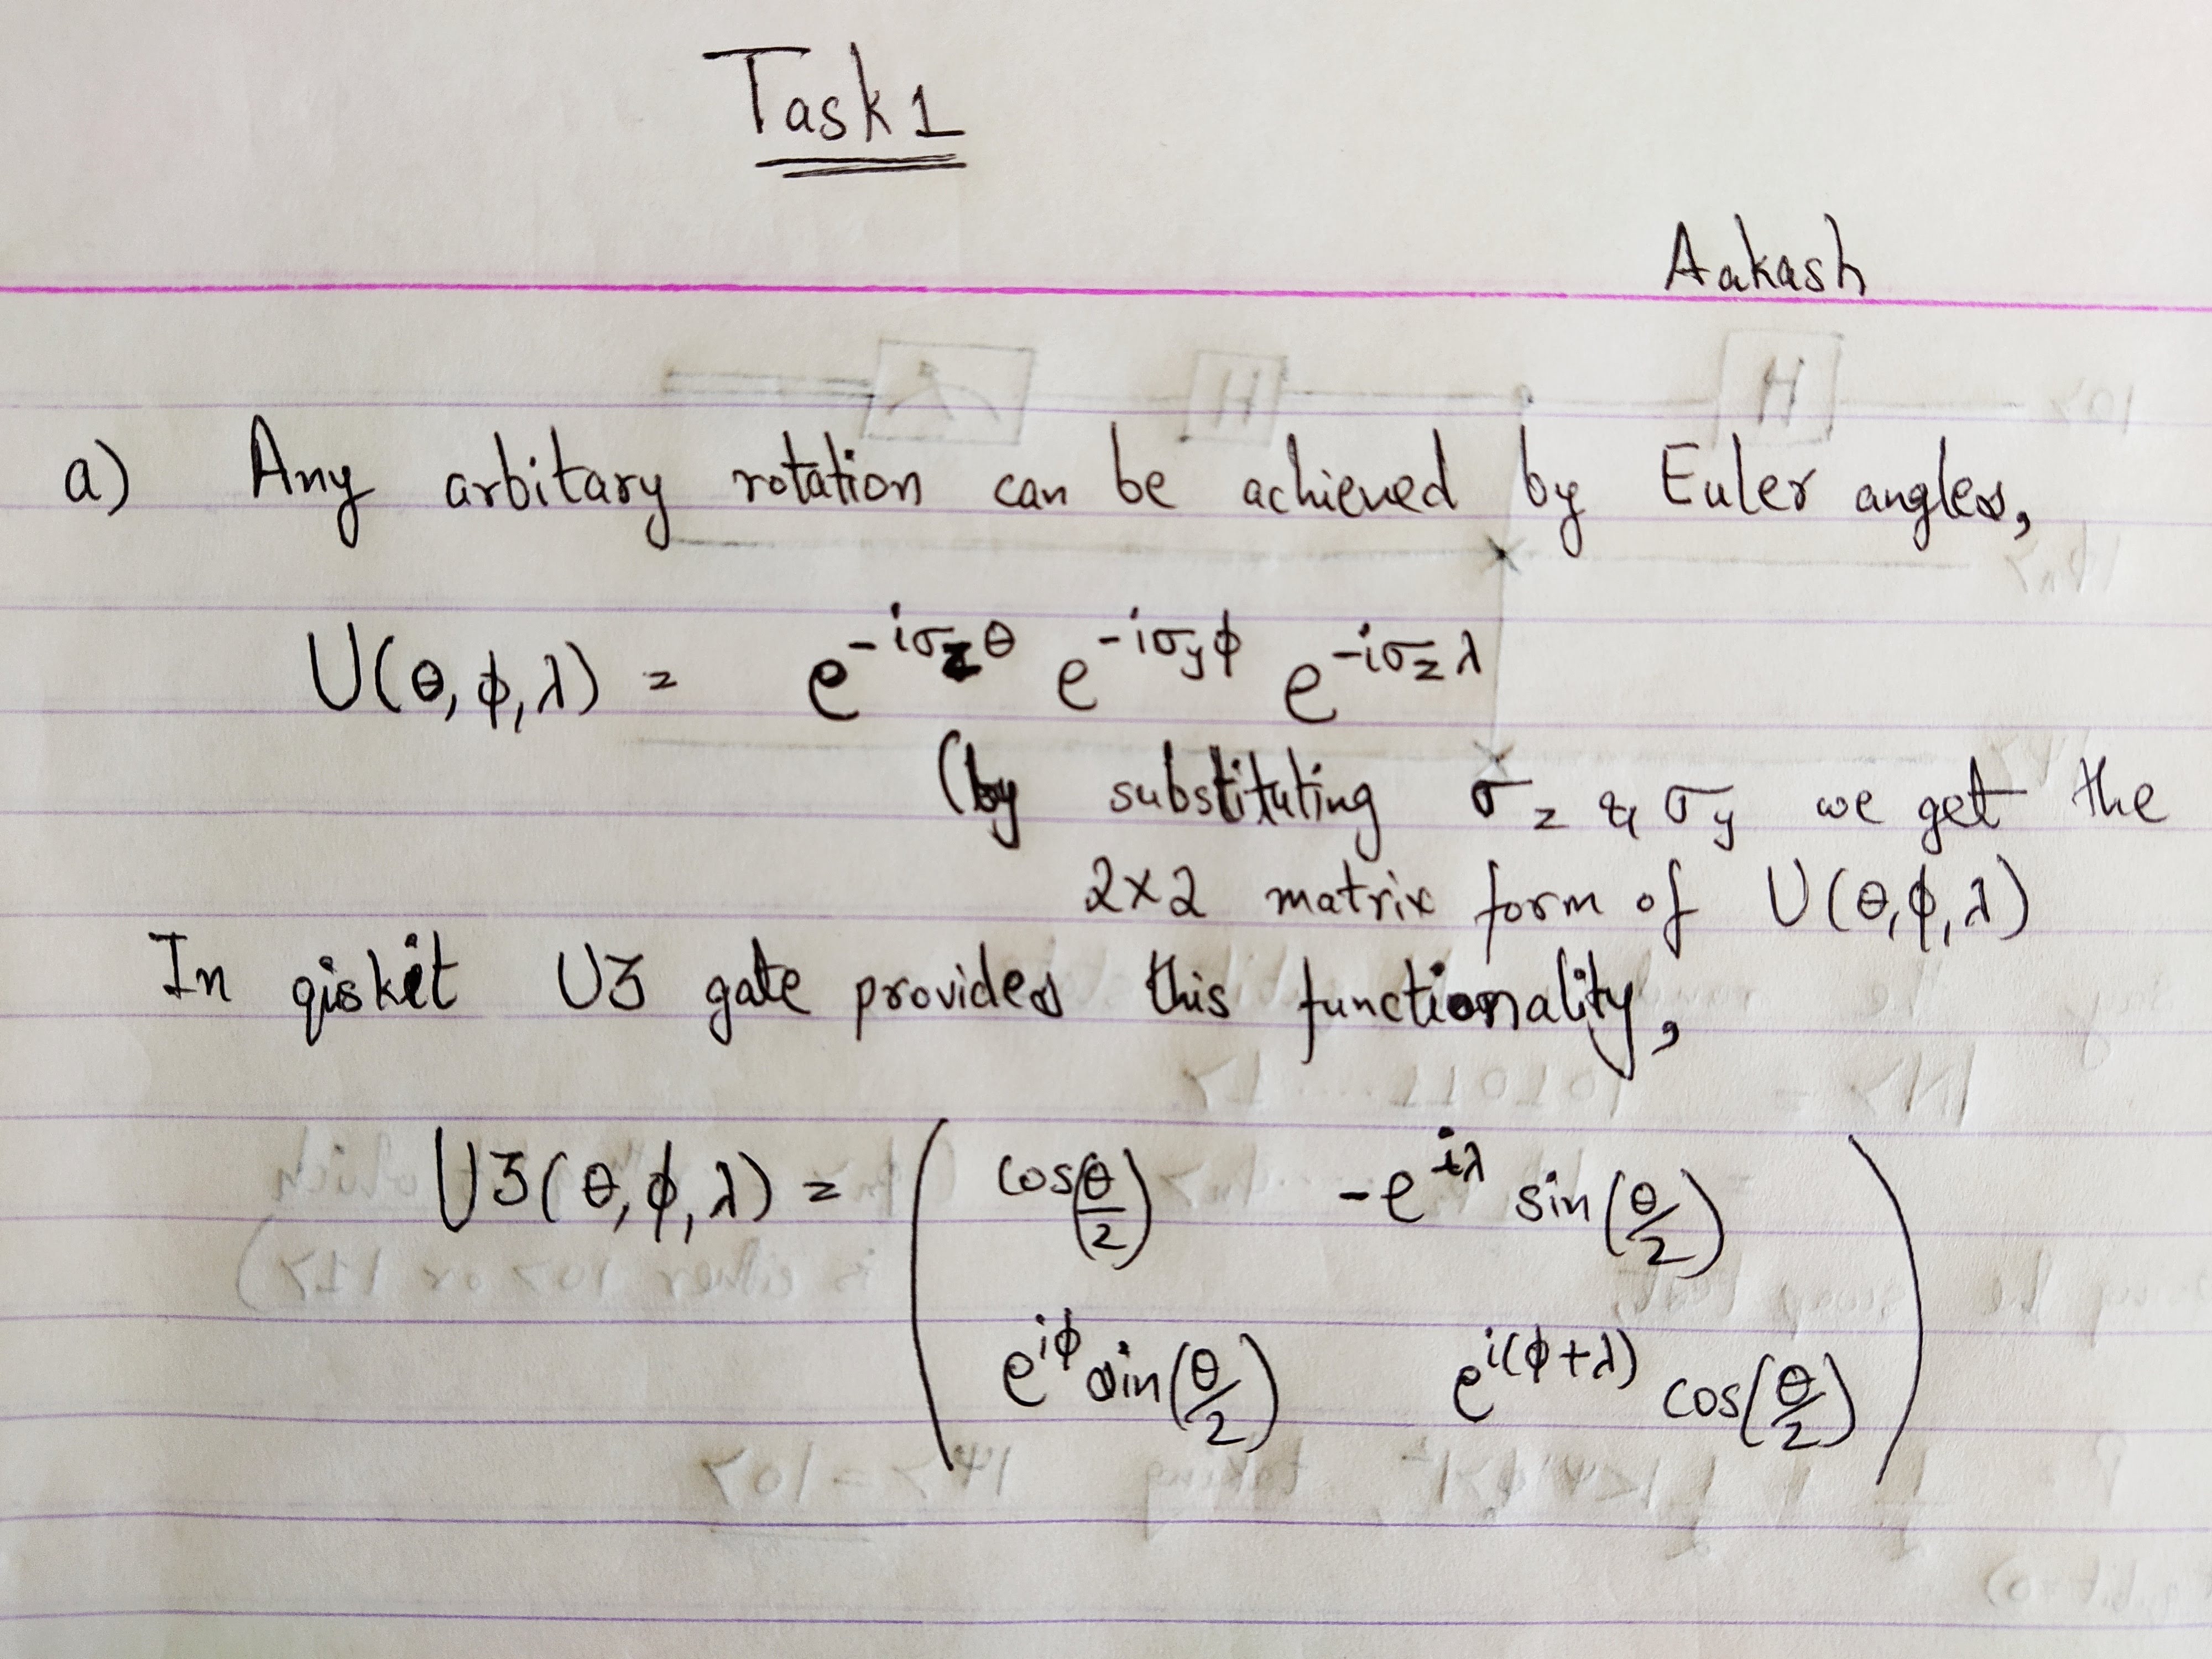 Task 1
Aakash
a) Any arbitary rotation can be achieved by Euler angles,
U(θ,ϕ,λ) = e^{-iσ_z θ} e^{-iσ_y ϕ} e^{-iσ_z λ}
(by substituting σ_z & σ_y we get the
2×2 matrix form of U(θ,ϕ,λ)
In qiskit U3 gate provides this functionality,
U3(θ,ϕ,λ) = ( cos(θ/2) -e^{iλ} sin(θ/2)
e^{iϕ} sin(θ/2) e^{i(ϕ+λ)} cos(θ/2) )